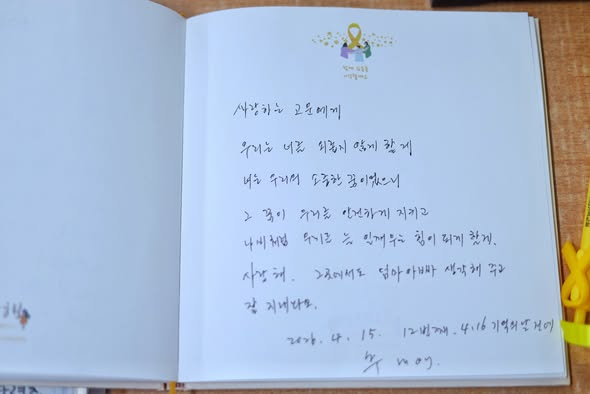 사랑하는 고운에게
우리는 너를 외롭지 않게 할게
너는 우리의 소중한 꿈이었으니
그 꿈이 우리를 안전하게 지키고
나비처럼 일깨우는 힘이 되게 할게.
사랑해. 그곳에서도 엄마아빠 생각해 주고
잘
2026. 4. 15. 12번째. 4.16 기억의 날